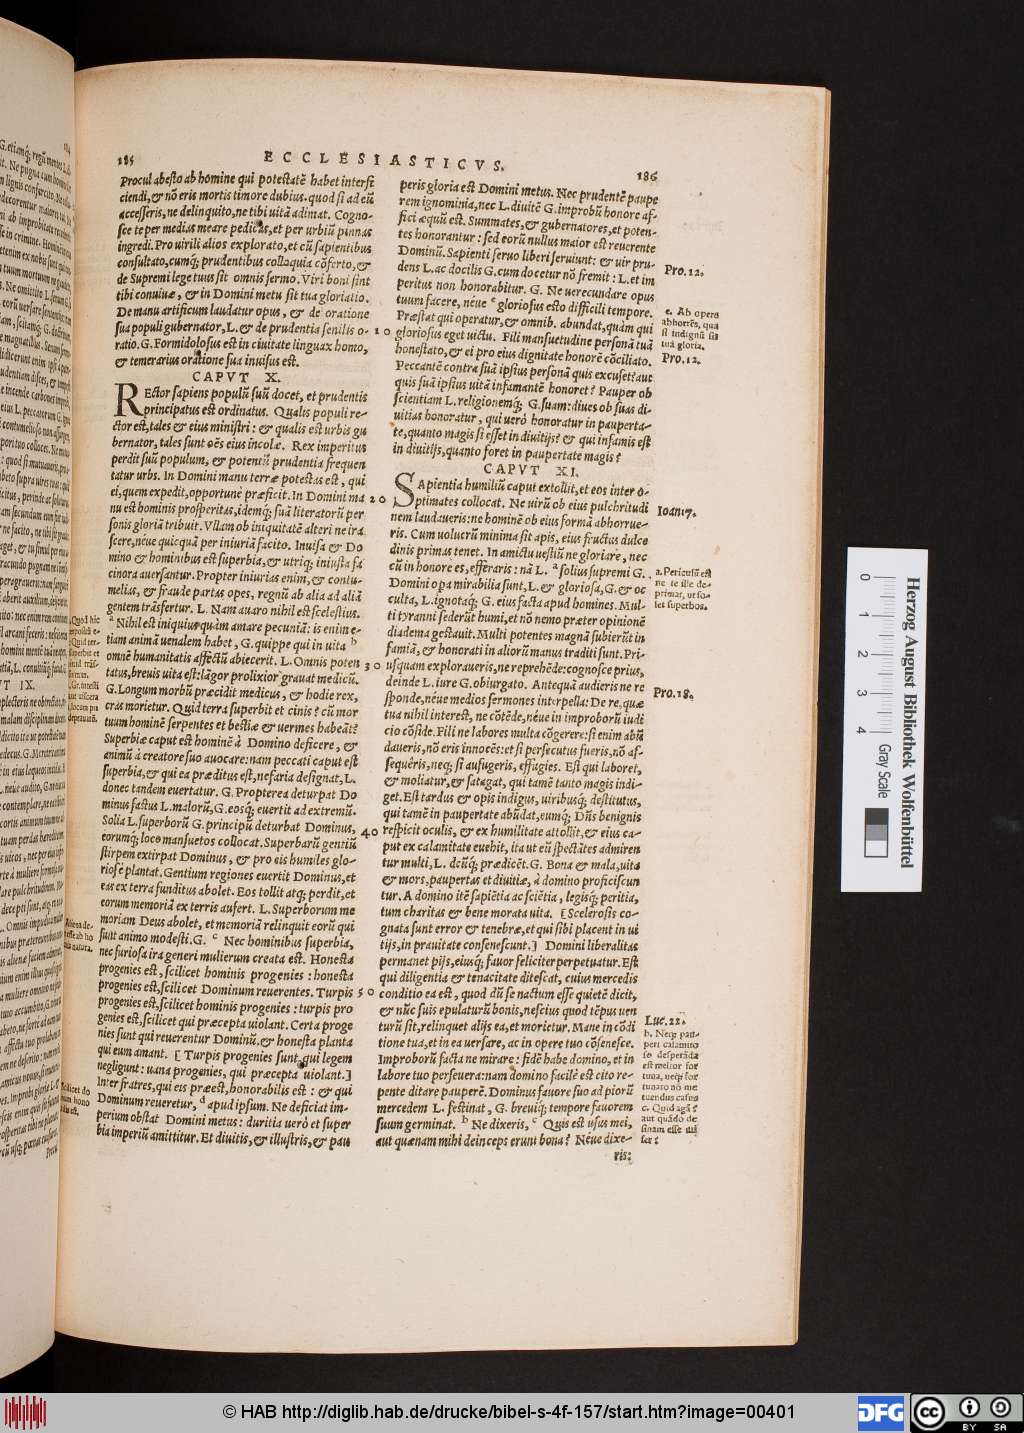 185
ECCLESIASTICVS.
186
Procul abesto ab homine qui potestatē habet interfi
ciendi, & nō eris mortis timore dubius. quod si ad eū
accesseris, ne delinquito, ne tibi uitā adimat. Cogno-
sce te per medias meare pedicas, et per urbiū pinnas
ingredi. Pro uirili alios explorato, et cū sapientibus
consultato, cumq́; prudentibus colloquia cōferto, &
de Supremi lege tuus sit omnis sermo. Viri boni sint
tibi conuiuæ, & in Domini metu sit tua gloriatio.
De manu artificum laudatur opus, & de oratione
sua populi gubernator, L. & de prudentia senilis o-
ratio. G. Formidolosus est in ciuitate linguax homo,
& temerarius oratione sua inuisus est.
CAPVT X.
REctor sapiens populū suū docet, et prudentis
principatus est ordinatus. Qualis populi re-
ctor est, tales & eius ministri: & qualis est urbis gu
bernator, tales sunt oēs eius incolæ. Rex imperitus
perdit suū populum, & potentū prudentia frequen
tatur urbs. In Domini manu terræ potestas est, qui
ei, quem expedit, opportune præficit. In Domini ma
nu est hominis prosperitas, idemq́; suā literatorū per
sonis gloriā tribuit. Vllam ob iniquitatē alteri ne ira
scere, néue quicquā per iniuriā facito. Inuisa & Do
mino & hominibus est superbia, & utriq; iniusta fa
cinora auersantur. Propter iniurias enim, & contu-
melias, & fraude partas opes, regnū ab alia ad aliā
gentem trāsfertur. L. Nam auaro nihil est scelestius.
a Nihil est iniquius quàm amare pecuniā: is enim e-
tiam animā uenalem habet, G. quippe qui in uita b
omnē humanitatis affectū abiecerit. L. Omnis poten
tatus, breuis uita est: lāgor prolixior grauat medicū.
G. Longum morbū præcidit medicus, & hodie rex,
cras morietur. Quid terra superbit et cinis? cū mor
tuum hominē serpentes et bestiæ & uermes habeāt?
Superbiæ caput est hominē à Domino deficere, &
animū à creatore suo auocare: nam peccati caput est
superbia, & qui ea præditus est, nefaria designat, L.
donec tandem euertatur. G. Propterea deturpat Do
minus fastus L. malorū, G. eosq́; euertit ad extremū.
Solia L. superborū G. principū deturbat Dominus,
eorumq́; loco mansuetos collocat. Superbarū gentiū
stirpem extirpat Dominus, & pro eis humiles glo-
riosè plantat. Gentium regiones euertit Dominus, et
eas ex terra funditus abolet. Eos tollit atq; perdit, et
eorum memoriā ex terris aufert. L. Superborum me
moriam Deus abolet, et memoriā relinquit eorū qui
sunt animo modesti. G. c Nec hominibus superbia,
nec furiosa ira generi mulierum creata est. Honesta
progenies est, scilicet hominis progenies: honesta
progenies est, scilicet Dominum reuerentes. Turpis
progenies est, scilicet hominis progenies: turpis pro
genies est, scilicet qui præcepta uiolant. Certa proge
nies sunt qui reuerentur Dominū, & honesta planta
qui eum amant. [Turpis progenies sunt, qui legem
negligunt: uana progenies, qui præcepta uiolant.]
Inter fratres, qui eis præest, honorabilis est: & qui
Dominum reueretur, d apud ipsum. Ne deficiat im-
perium obstat Domini metus: duritia uerò et super
bia imperiū amittitur. Et diuitis, & illustris, & pau
10
20
30
40
50
peris gloria est Domini metus. Nec prudentē paupe
rem ignominia, nec L. diuitē G. improbū honore af-
fici æquū est. Summates, & gubernatores, et poten-
tes honorantur: sed eorū nullus maior est reuerente
Dominū. Sapienti seruo liberi seruiunt: & uir pru-
dens L. ac docilis G. cum docetur nō fremit: L. et im
peritus non honorabitur. G. Ne uerecundare opus
tuum facere, néue e gloriosus esto difficili tempore.
Præstat qui operatur, & omnib. abundat, quàm qui
gloriosus eget uictu. Fili mansuetudine personā tuā
honestato, & ei pro eius dignitate honorē cōciliato.
Peccantē contra suā ipsius personā quis excuset? aut
quis suā ipsius uitā infamantē honoret? Pauper ob
scientiam L. religionemq́; G. suam: diues ob suas di-
uitias honoratur, qui uerò honoratur in pauperta-
te, quanto magis si esset in diuitijs? & qui infamis est
in diuitijs, quanto foret in paupertate magis?
CAPVT XI.
SApientia humiliū caput extollit, et eos inter o-
ptimates collocat. Ne uirū ob eius pulchritudi
nem laudaueris: ne hominē ob eius formā abhorrue-
ris. Cum uolucrū minima sit apis, eius fructus dulce
dinis primas tenet. In amictu uestiū ne gloriare, nec
cū in honore es, efferaris: nā L. a solius supremi G.
Domini opa mirabilia sunt, L. & gloriosa, G. & oc
culta, L. ignotaq́; G. eius facta apud homines. Mul-
ti tyranni sederūt humi, et nō nemo præter opinionē
diadema gestauit. Multi potentes magnā subierūt in
famiā, & honorati in aliorū manus traditi sunt. Pri-
usquam exploraueris, ne reprehēde: cognosce prius,
deinde L. iure G. obiurgato. Antequā audieris ne re
sponde, néue medios sermones interpella: De re, quæ
tua nihil interest, ne cōtēde, néue in improborū iudi
cio cōside. Fili ne labores multa cōgerere: si enim abū
daueris, nō eris innocēs: et si persecutus fueris, nō as-
sequêris, neq; si aufugeris, effugies. Est qui laboret,
& moliatur, & satagat, qui tamē tanto magis indi-
get. Est tardus & opis indigus, uiribusq́; destitutus,
qui tamē in paupertate abūdat, eumq́; Dn̄s benignis
respicit oculis, & ex humilitate attollit, & eius ca-
put ex calamitate euehit, ita ut eū spectātes admiren
tur multi, L. deūq́; prædicēt. G. Bona & mala, uita
& mors, paupertas et diuitiæ, à domino proficiscun
tur. A domino itē sapiētia ac sciētia, legisq́; peritia,
tum charitas & bene morata uita. [Scelerosis co-
gnata sunt error & tenebræ, et qui sibi placent in ui
tijs, in prauitate consenescunt.] Domini liberalitas
permanet pijs, eiusq́; fauor feliciter perpetuatur. Est
qui diligentia & tenacitate ditescat, cuius mercedis
conditio ea est, quod dū se nactum esse quietē dicit,
& nūc suis epulaturū bonis, nescius quod tēpus uen
turū sit, relinquet alijs ea, et morietur. Mane in cōdi
tione tua, et in ea uersare, ac in opere tuo cōsenesce.
Improborū facta ne mirare: fidē habe domino, et in
labore tuo perseuera: nam domino facilē est cito re-
pente ditare pauperē. Dominus fauore suo ad piorū
mercedem L. festinat, G. breuiq́; tempore fauorem
suum germinat. b Ne dixeris, c Quis est usus mei,
aut quænam mihi deinceps erunt bona? Néue dixe-
ris:
Pro. 12.
e. Ab opere
abhorrēs, qua
si indignū sit
tuā gloria.
Pro. 12.
Ioan. 7.
a. Periculū est
ne te ille de-
primat, ut so-
let superbos.
Pro. 18.
Luc. 22.
b. Neq; pau-
peri calamito
so desperāda
est melior for
tuna, neq; for
tunato nō me
tuendus casus
c. Quid agā?
aut quādo de
sinam esse mi
ser?
Herzog August Bibliothek Wolfenbüttel
0 1 2 3 4
Gray Scale
© HAB http://diglib.hab.de/drucke/bibel-s-4f-157/start.htm?image=00401
DFG
cc BY SA